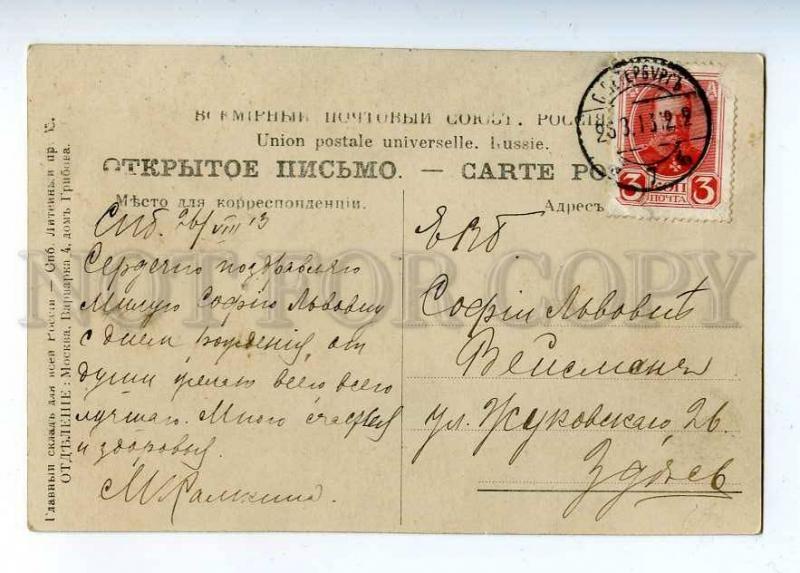 ВСЕМІРНЫЙ ПОЧТОВЫЙ СОЮЗЪ. РОССІЯ
Union postale universelle. Russie.
ОТКРЫТОЕ ПИСЬМО. — CARTE PO
Мѣсто для корреспонденціи.
Адресъ
Спб. 26/VIII 13
Сердечно поздравляю
милую Софію Львовну
с днем рождения, от
души желаю всего, всего
лучшаго. Много счастья
и здоровья.
ЕВб
Софіи Львовнѣ
Вейсманъ
ул. Жуковскаго, 26.
Здѣсь
С.ПЕТЕРБУРГЪ
3 КОП 3
ПОЧТА
Главный складъ для всей Россіи — Спб. Литейный пр.
ОТДѢЛЕНІЕ: Москва. Варварка 4, домъ Грибова.
NOT FOR COPY